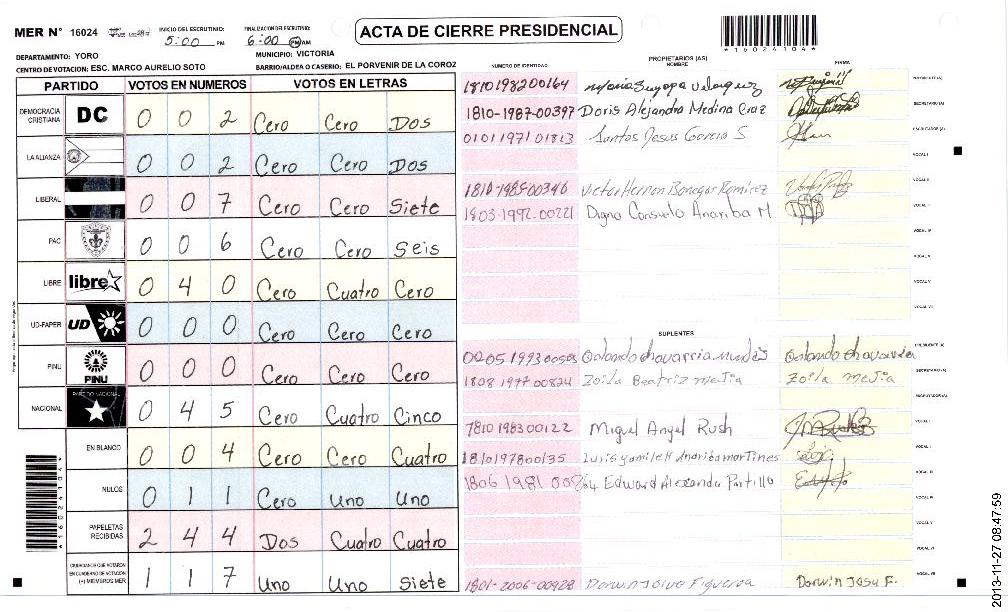 MER N° 16024
INICIO DEL ESCRUTINIO: 5:00 PM
FINALIZACION DEL ESCRUTINIO: 6:00 PM AM
ACTA DE CIERRE PRESIDENCIAL
*16024104*
DEPARTAMENTO: YORO
MUNICIPIO: VICTORIA
CENTRO DE VOTACION: ESC. MARCO AURELIO SOTO
BARRIO/ALDEA O CASERIO: EL PORVENIR DE LA COROZ
PARTIDO VOTOS EN NUMEROS VOTOS EN LETRAS
DEMOCRACIA CRISTIANA DC 0 0 2 Cero Cero Dos
LA ALIANZA 0 0 2 Cero Cero Dos
LIBERAL 0 0 7 Cero Cero Siete
PAC 0 0 6 Cero Cero Seis
LIBRE libre 0 4 0 Cero Cuatro Cero
UD-FAPER UD 0 0 0 Cero Cero Cero
PINU PINU 0 0 0 Cero Cero Cero
NACIONAL PARTIDO NACIONAL 0 4 5 Cero Cuatro Cinco
EN BLANCO 0 0 4 Cero Cero Cuatro
NULOS 0 1 1 Cero Uno Uno
PAPELETAS RECIBIDAS 2 4 4 Dos Cuatro Cuatro
CIUDADANOS QUE VOTARON EN CUADERNO DE VOTACION (+) MIEMBROS MER 1 1 7 Uno Uno Siete
PROPIETARIOS (AS)
NUMERO DE IDENTIDAD NOMBRE FIRMA
1810198200164 Maria Suyapa Velasquez PRESIDENTE(A)
1810-1987-00397 Doris Alejandra Medina Cruz SECRETARIO (A)
0101197101813 Santos Jesus Garcia S ESCRUTADOR (A)
VOCAL I
1810-1985-00346 Victor Hernan Ramirez VOCAL II
1803-1992-00221 Digna Consuelo Anariba M
VOCAL IV
VOCAL V
VOCAL VI
VOCAL VII
SUPLENTES
Orlando chavarria Orlando chavarria PRESIDENTE (A)
1808 1977 00824 Zoila Beatriz Mejia Zoila Mejia SECRETARIO (A)
ESCRUTADOR (A)
1810198300122 Miguel Angel Rush VOCAL I
1810197800135
1806 1981 Edward Alexander Portillo
VOCAL V
VOCAL VI
1801-2006-00928 Dorwin Figueroa Dorwin Josu F. VOCAL VII
2013-11-27 08:47:59